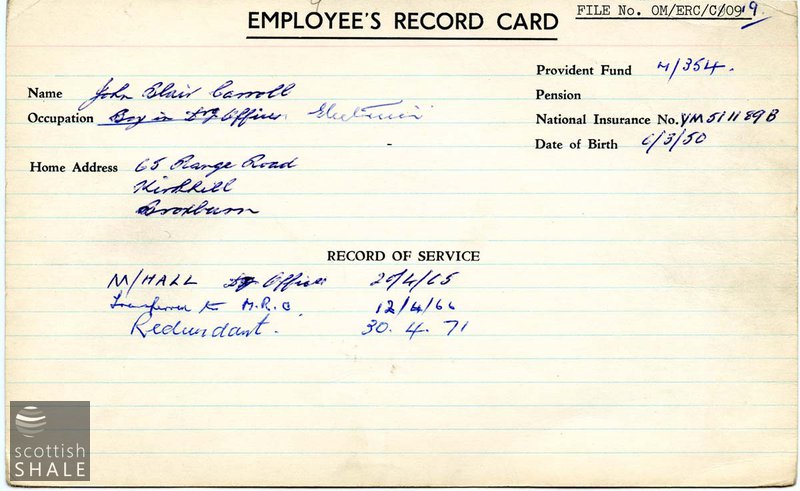 EMPLOYEE'S RECORD CARD
FILE No. OM/ERC/C/099
Provident Fund M/354.
Name John Blair Carroll
Pension
Occupation Boy in Dg Offices Electrician
National Insurance No. YM511189B
Date of Birth 6/3/50
Home Address 65 Range Road
Kirkhill
Broxburn
RECORD OF SERVICE
M/HALL Dg Offices 20/4/65
Transferred to M.R.O. 12/4/66
Redundant. 30.4.71
scottish
SHALE